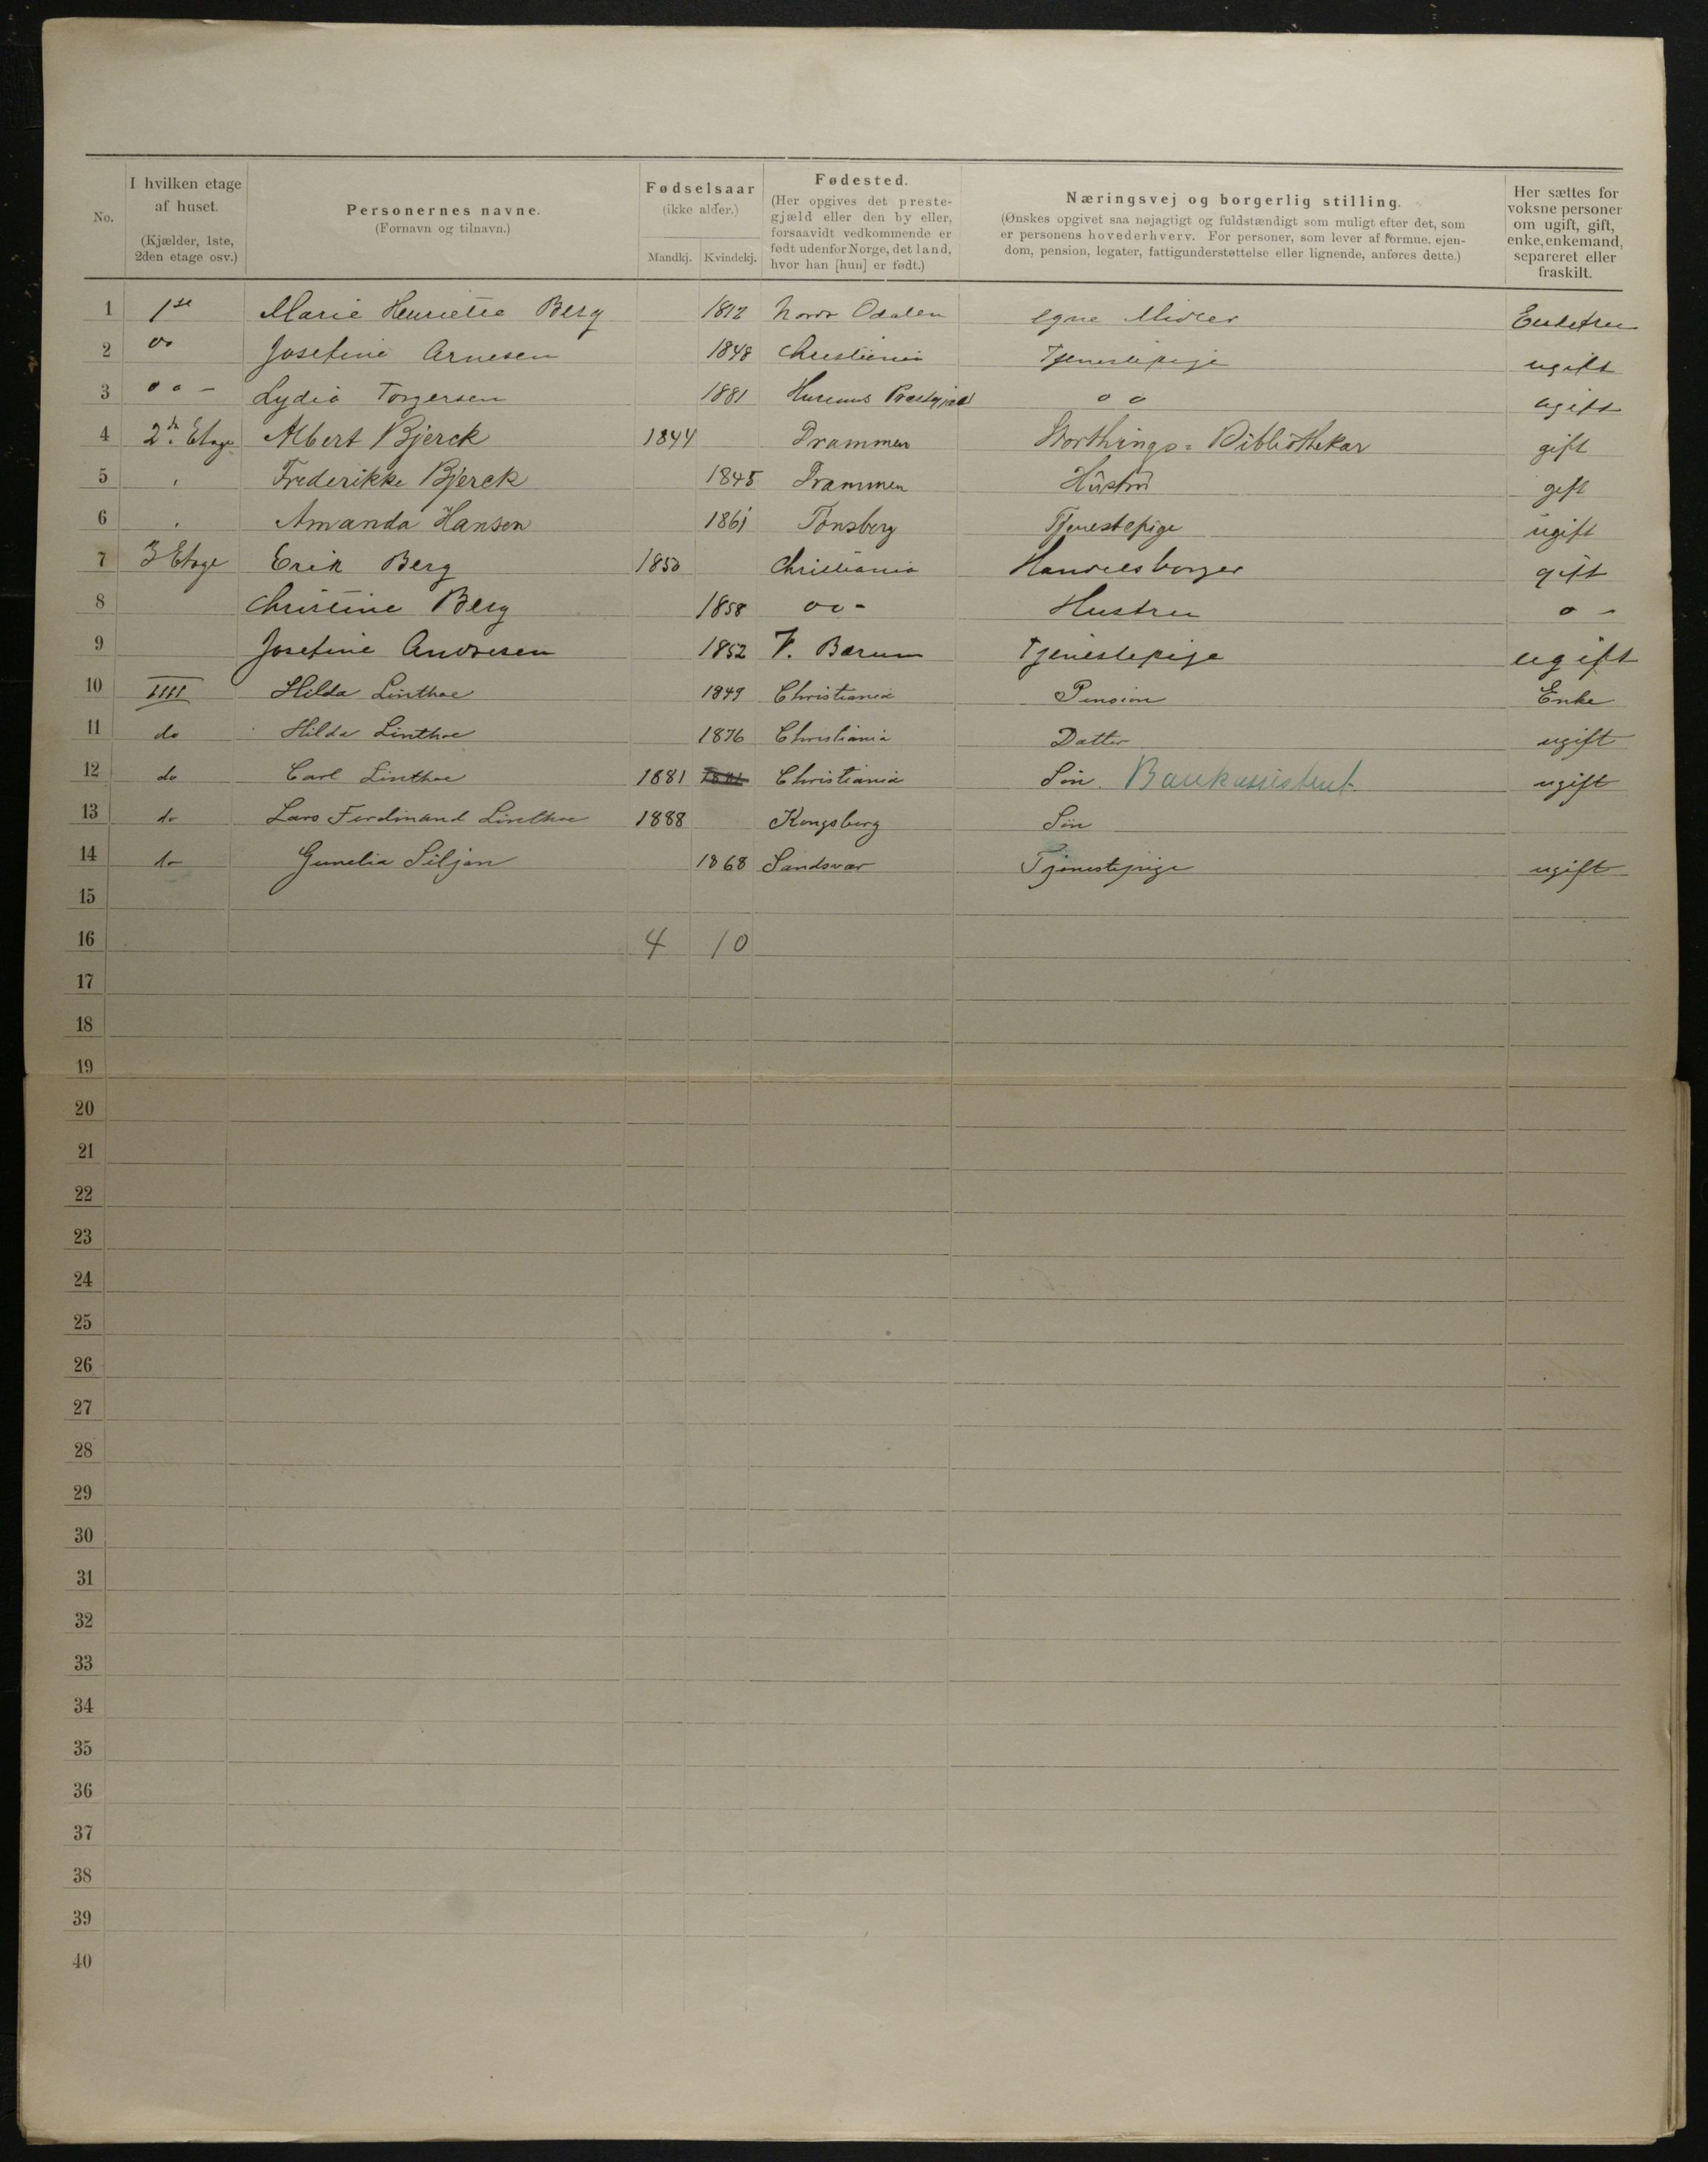 No. | I hvilken etage af huset. (Kjælder, 1ste, 2den etage osv.) | Personernes navne. (Fornavn og tilnavn.) | Fødselsaar (ikke alder.) Mandkj. | Kvindekj. | Fødested. (Her opgives det prestegjæld eller den by eller, forsaavidt vedkommende er født udenfor Norge, det land, hvor han [hun] er født.) | Næringsvej og borgerlig stilling. (Ønskes opgivet saa nøjagtigt og fuldstændigt som muligt efter det, som er personens hovederhverv. For personer, som lever af formue, ejendom, pension, legater, fattigunderstøttelse eller lignende, anføres dette.) | Her sættes for voksne personer om ugift, gift, enke, enkemand, separeret eller fraskilt.
1 | 1st | Marie Henriette Berg | | 1812 | Nordr Odalen | egne Midler | Enkefru
2 | do | Josefine Arnesen | | 1848 | Christiania | Tjenestepige | ugift
3 | do - | Lydia Torgersen | | 1881 | Hurums Præstgjæld | do | ugift
4 | 2den Etage | Albert Bjerck | 1844 | | Drammen | Storthings=Bibliothekar | gift
5 | " | Frederikke Bjerck | | 1845 | Drammen | Hustru | gift
6 | " | Amanda Hansen | | 1861 | Tønsberg | Tjenestepige | ugift
7 | 3 Etage | Erik Berg | 1850 | | Christiania | Handelsborger | gift
8 | | Christine Berg | | 1858 | do - | Hustru | do -
9 | | Josefine Andresen | | 1852 | V. Bærum | Tjenestepige | ugift
10 | IIII | Hilda Linthoe | | 1849 | Christiania | Pension | Enke
11 | do | Hilda Linthoe | | 1876 | Christiania | Datter | ugift
12 | do | Carl Linthoe | 1881 | 1881 | Christiania | Søn. Bankassistent. | ugift
13 | do | Lars Ferdinand Linthoe | 1888 | | Kongsberg | Søn
14 | do | Gunelia Siljan | | 1868 | Sandsvær | Tjenestepige | ugift
15
16 | | | 4 | 10
17
18
19
20
21
22
23
24
25
26
27
28
29
30
31
32
33
34
35
36
37
38
39
40